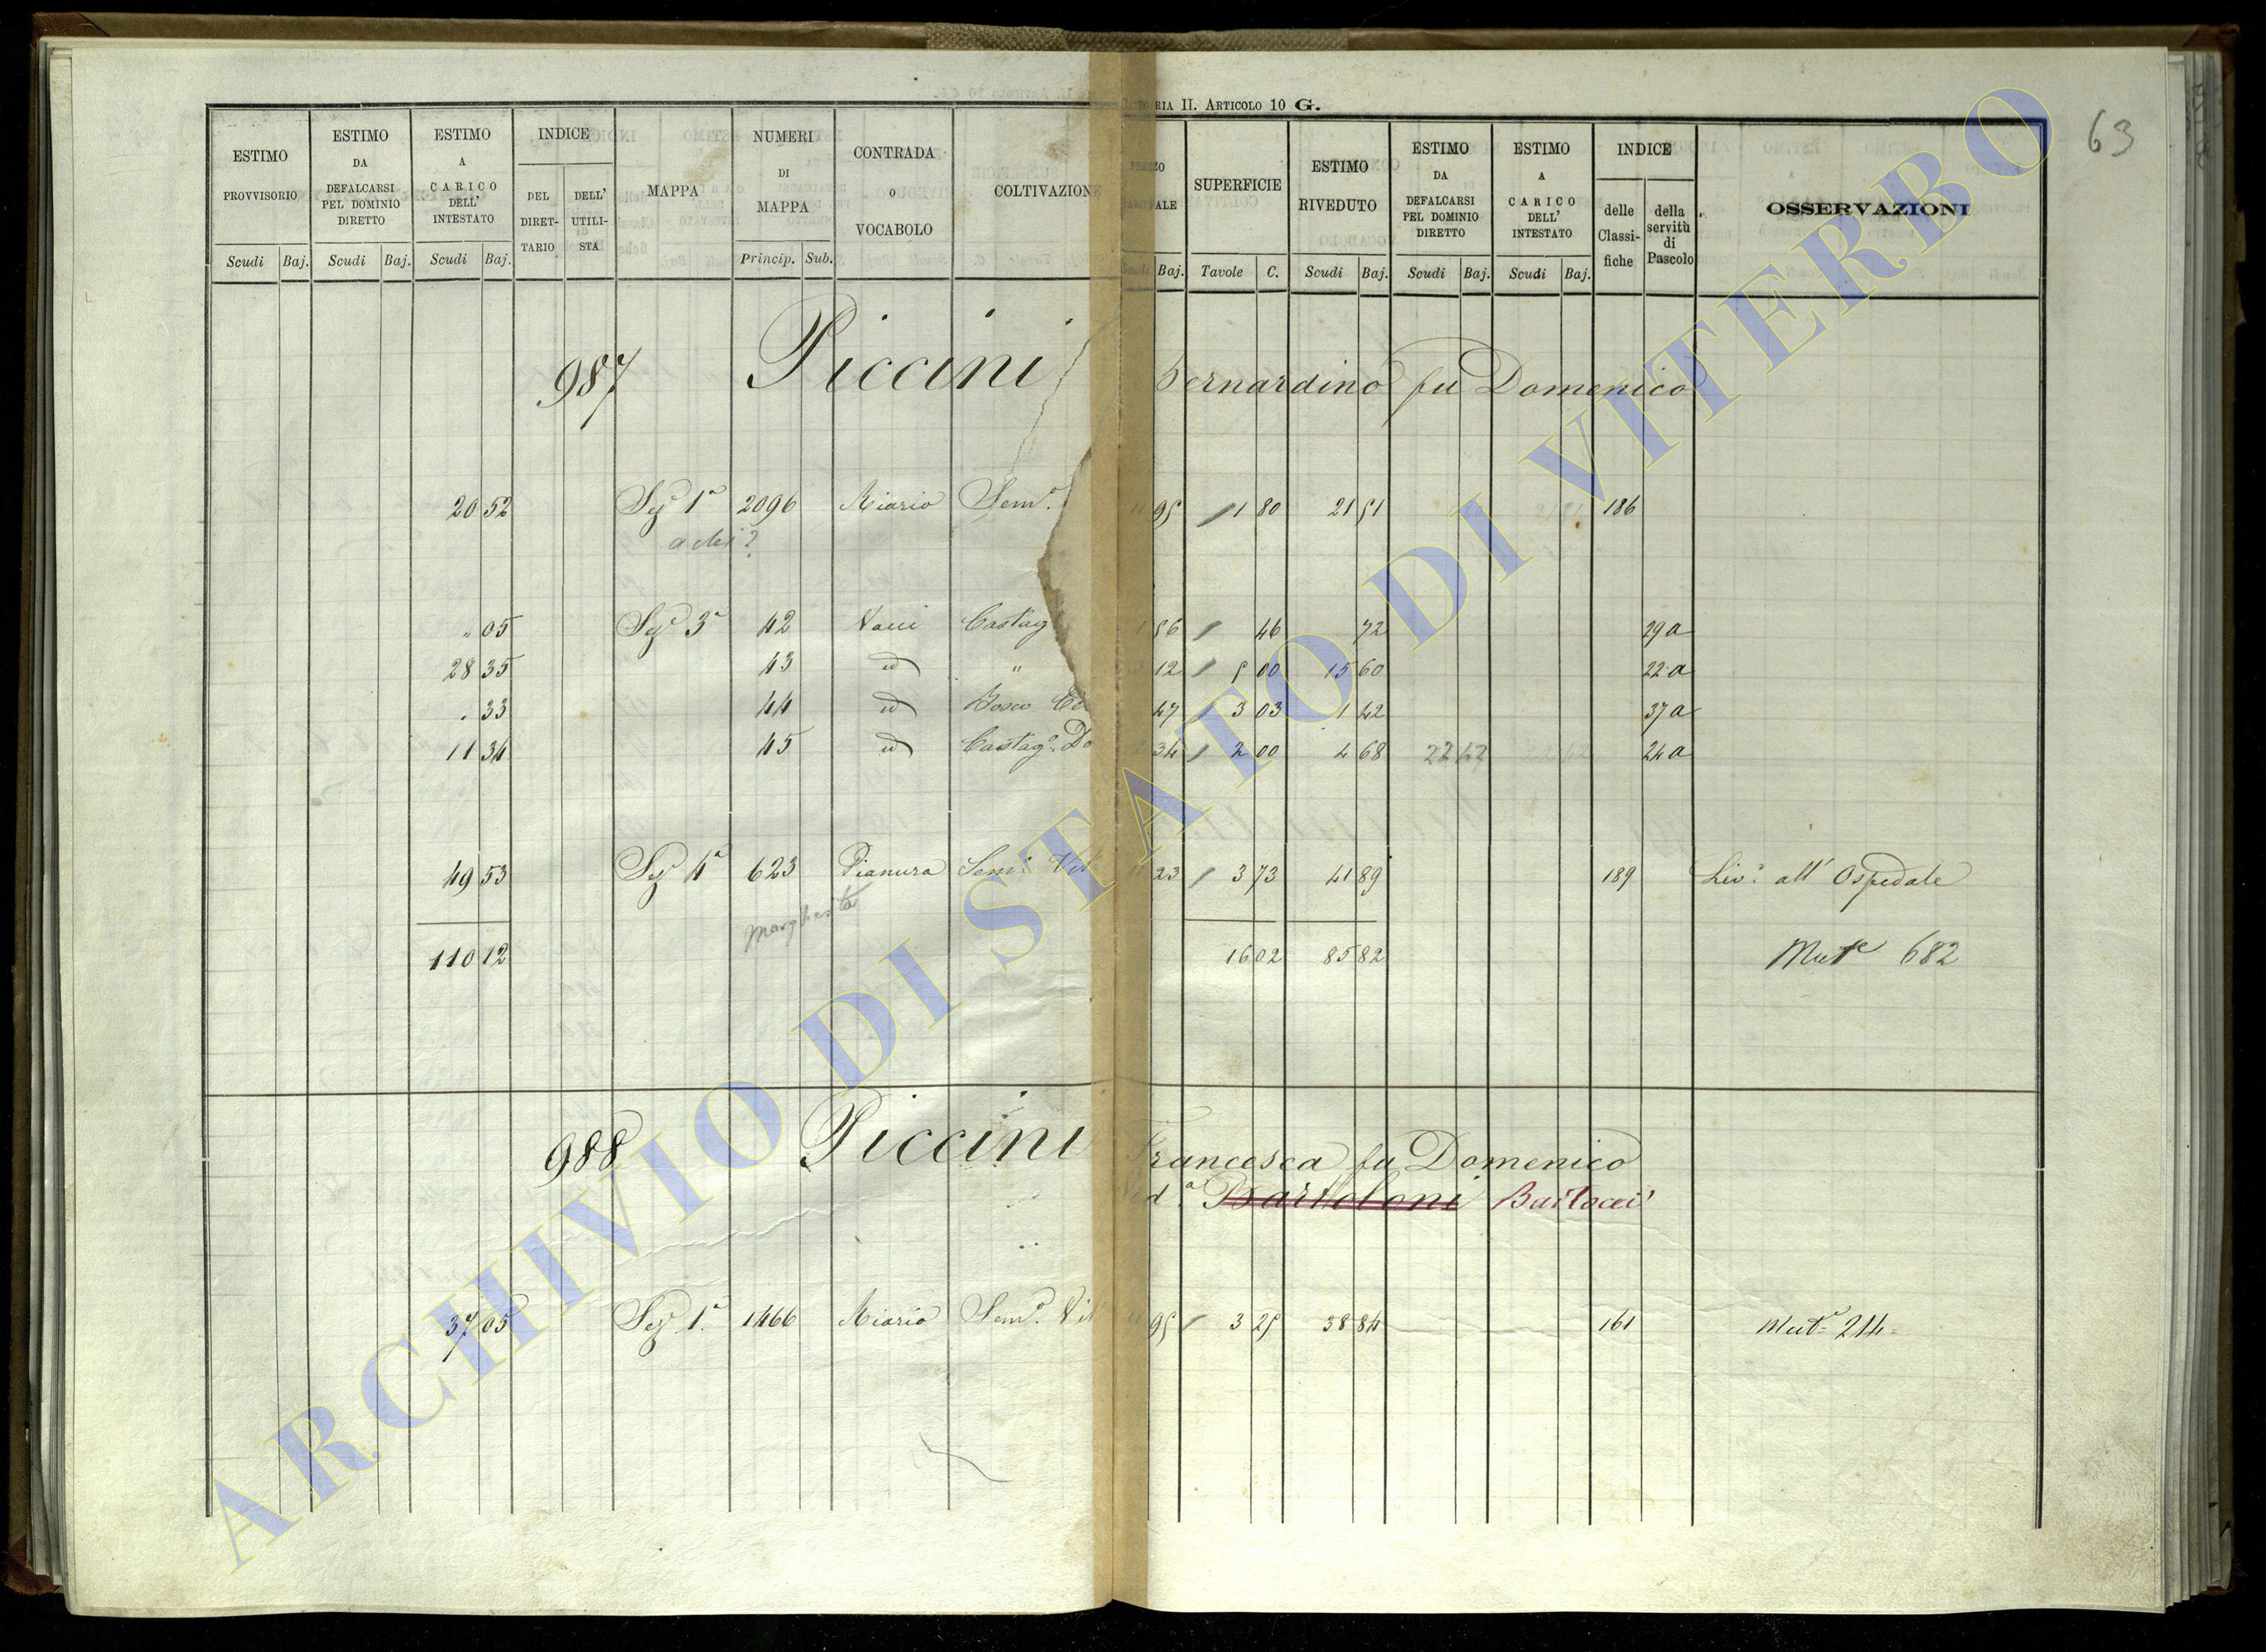 CATEGORIA II. ARTICOLO 10 G.
63
ESTIMO PROVVISORIO Scudi Baj. ESTIMO DA DEFALCARSI PEL DOMINIO DIRETTO Scudi Baj. ESTIMO A CARICO DELL' INTESTATO Scudi Baj. INDICE DEL DIRETTARIO DELL' UTILISTA MAPPA NUMERI DI MAPPA Princip. Sub. CONTRADA O VOCABOLO COLTIVAZIONE
Baj. SUPERFICIE Tavole C. ESTIMO RIVEDUTO Scudi Baj. ESTIMO DA DEFALCARSI PEL DOMINIO DIRETTO Scudi Baj. ESTIMO A CARICO DELL' INTESTATO Scudi Baj. INDICE delle Classifiche della servitù di Pascolo OSSERVAZIONI
987 Piccini Bernardino fu Domenico
20 52 Sez.e 1a 2096 Riario Sem.o 95 1 80 21 51 186
" 05 Sez.e 3a 42 Vacci Castag 56 46 72 29 a
28 35 43 id " 12 5 00 15 60 22 a
" 33 44 id Bosco 47 3 03 1 42 37 a
11 34 45 id Castag.o Do 34 2 00 4 68 22 42 24 a
49 53 Sez.e 4a 623 Pianura Sem.o Vit 23 3 73 41 89 189 Liv.o all' Ospedale
Margherita
110 12 16 02 85 82 Mut.e 682
988 Piccini Francesca fu Domenico
Ved.a Bartoloni Bartocci
37 05 Sez.e 1a 1466 Riario Sem.o Vit 95 3 25 38 84 161 Mut.e 214
ARCHIVIO DI STATO DI VITERBO